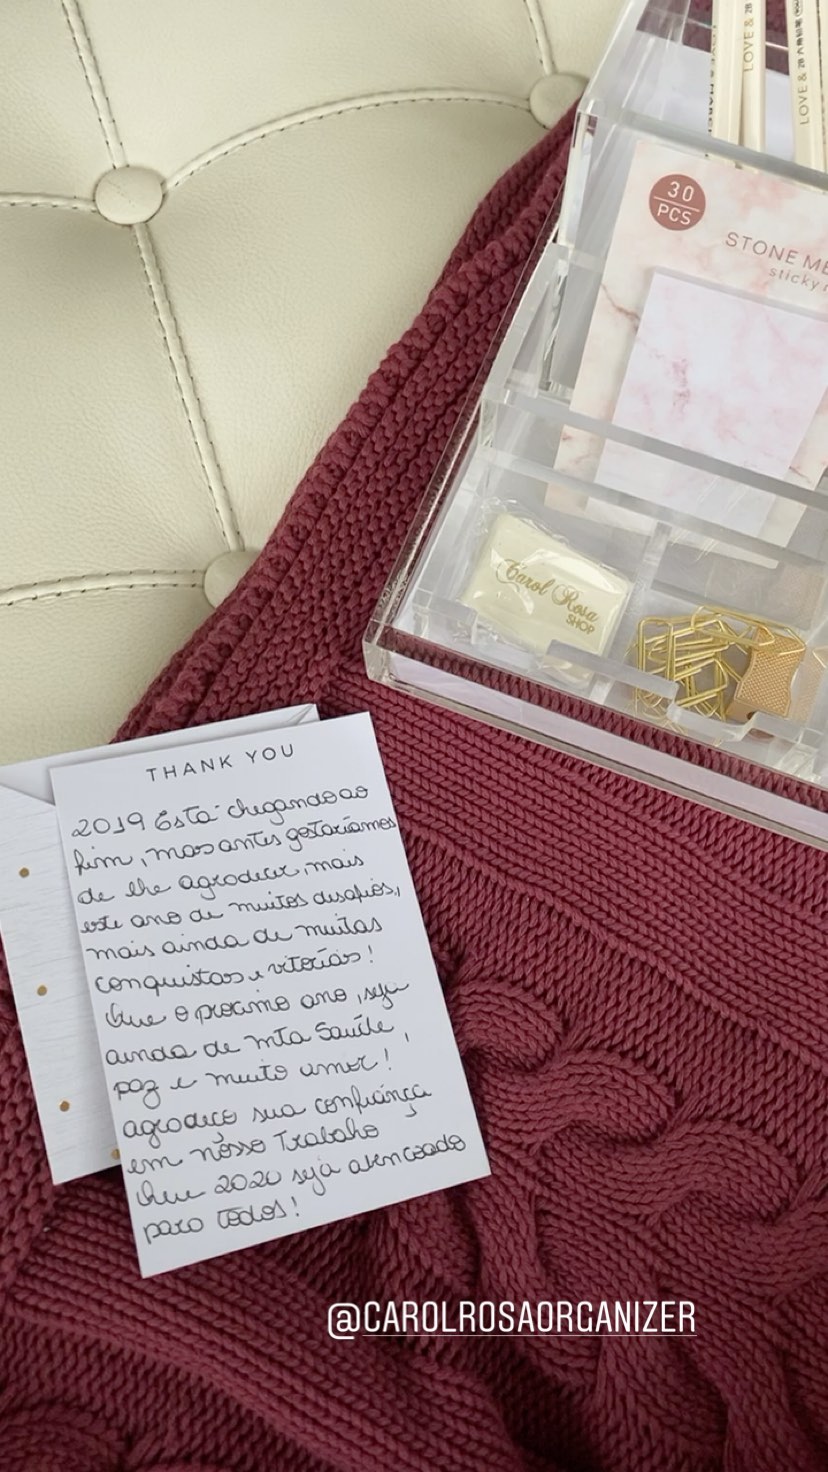 LOVE &
2B
LOVE & 2B 六角铅笔
30
PCS
STONE ME
sticky
Carol Rosa
SHOP
THANK YOU
2019 Está chegando ao
fim, mas antes gostaríamos
de lhe agradecer, mais
este ano de muitos desafios,
mais ainda de muitas
conquistas e vitórias!
Que o proximo ano, seja
ainda de mta Saúde,
paz e muito amor!
agradeço sua confiança
em nosso Trabaho
Que 2020 seja abençoado
para todos!
@CAROLROSAORGANIZER